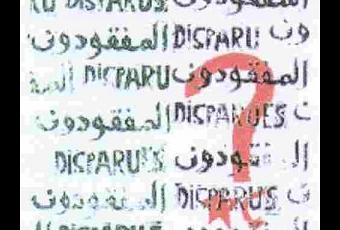 DISPARUS المفقودون
المفقودون DISPARU
DISPARU المفقودون
المفقودون DISPARUES
DISPARUS المفقودون
المفقودون DISPARUS
DISPARUS المفقودون